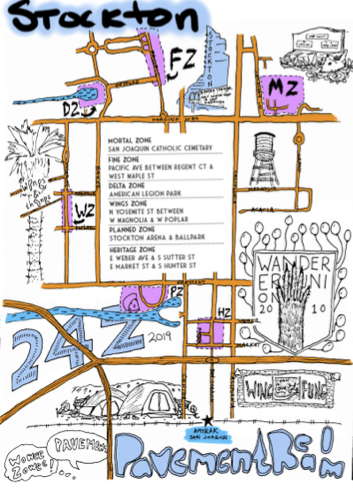 STOCKTON
FZ
MZ
DZ
HARDING WAY
MORTAL ZONE
SAN JOAQUIN CATHOLIC CEMETARY
FINE ZONE
PACIFIC AVE BETWEEN REGENT CT &
WEST MAPLE ST
DELTA ZONE
AMERICAN LEGION PARK
WINGS ZONE
N YOSEMITE ST BETWEEN
W MAGNOLIA & W POPLAR
PLANNED ZONE
STOCKTON ARENA & BALLPARK
HERITAGE ZONE
E WEBER AVE & S SUTTER ST
E MARKET ST & S HUNTER ST
WZ
ACACIA
WANDER
ER UNI
ON
20 10
PZ
HZ
24Z
2019
WING FUNG
AMTRAK
SAN JOAQUIN
WONKE
ZONES!
PAVEMENT
PavementReam!